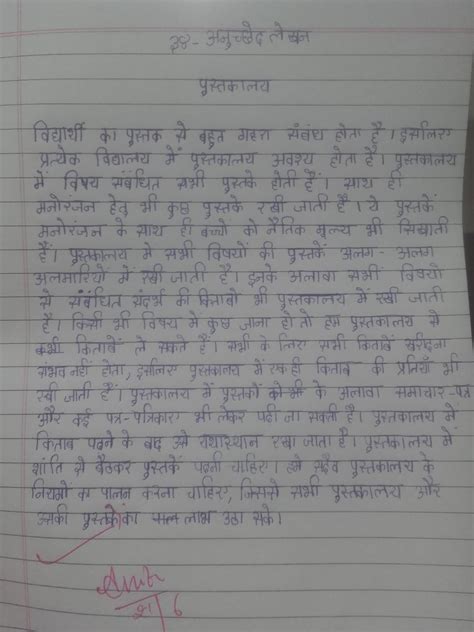 ३४- अनुच्छेद लेखन
पुस्तकालय
विद्यार्थी का पुस्तक से बहुत गहरा संबंध होता है। इसलिए
प्रत्येक विद्यालय में पुस्तकालय अवश्य होता है। पुस्तकालय
में विषय संबंधित सभी पुस्तकें होती हैं। साथ ही
मनोरंजन हेतु भी कुछ पुस्तकें रखी जाती हैं। ये पुस्तकें
मनोरंजन के साथ ही बच्चों को नैतिक मूल्य भी सिखाती
हैं। पुस्तकालय में सभी विषयों की पुस्तकें अलग-अलग
अलमारियों में रखी जाती हैं। इनके अलावा सभी विषयों
से संबंधित संदर्भ की किताबें भी पुस्तकालय में रखी जाती
हैं। किसी भी विषय में कुछ जाना हो तो हम पुस्तकालय से
किताबें ले सकते हैं। सभी के लिए सभी किताबें खरीदना
संभव नहीं होता, इसलिए पुस्तकालय में एक ही किताब की प्रतियाँ भी
रखी जाती हैं। पुस्तकालय में पुस्तकों के अलावा समाचार-पत्र
और कई पत्र-पत्रिकाएँ भी लेकर पढ़ी जा सकती हैं। पुस्तकालय में
किताब पढ़ने के बाद उसे यथास्थान रखा जाता है। पुस्तकालय में
शांति से बैठकर पुस्तकें पढ़नी चाहिए। हमें सदैव पुस्तकालय के
नियमों का पालन करना चाहिए, जिससे सभी पुस्तकालय और
उसकी पुस्तकों का लाभ उठा सके।